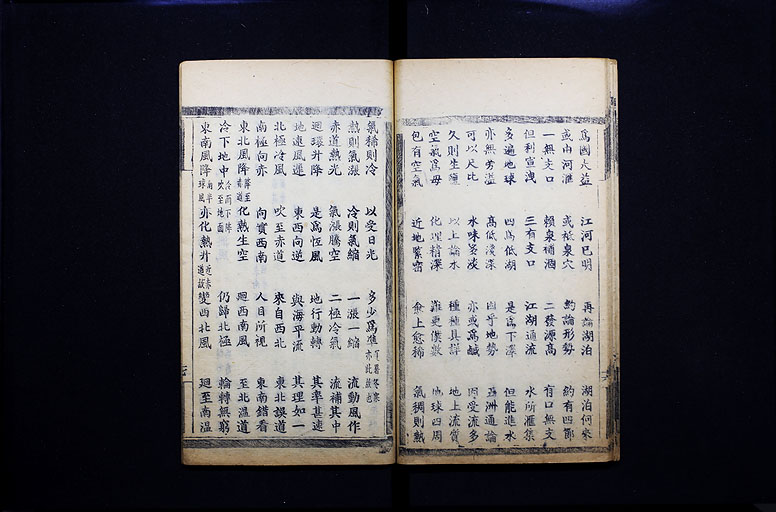 爲國大益 江河已明 再論湖泊 湖泊何來
或由河滙 或祗泉穴 約論形勢 約有四節
一無支口 賴泉補涸 二發源高 有口無支
但利宣洩 三有支口 江湖通流 水所滙集
多遍地球 四爲低湖 是爲下澤 但能進水
亦無旁溢 高低淺深 因乎地勢 亞洲通論
可以尺比 水味荃淡 亦或爲鹹 因受流多
久則生鹽 以上論水 種種具詳 地上流質
空氣爲母 化理精深 難更僕數 地球四周
包有空氣 近地緊密 愈上愈稀 氣稠則熱
氣稀則冷 以受日光 多少爲準
熱則氣漲 冷則氣縮 一漲一縮 流動風作
赤道熱光 氣漲騰空 二極冷氣 流補其中
迴環升降 是爲恆風 地行動轉 其率甚速
地速風遲 東西向逆 與海平流 其理如一
北極冷風 吹至赤道 來自西北 東北誤道
南極向赤 向實西南 人目所視 東南錯看
東北風降 降至赤道 化熱生空 迴西南風 至北溫道
冷下地中 冷而下降 吹至地面 仍歸北極 輪轉無窮
東南風降 南半球風 亦化熱升 近赤道試 變西北風 迴至南溫